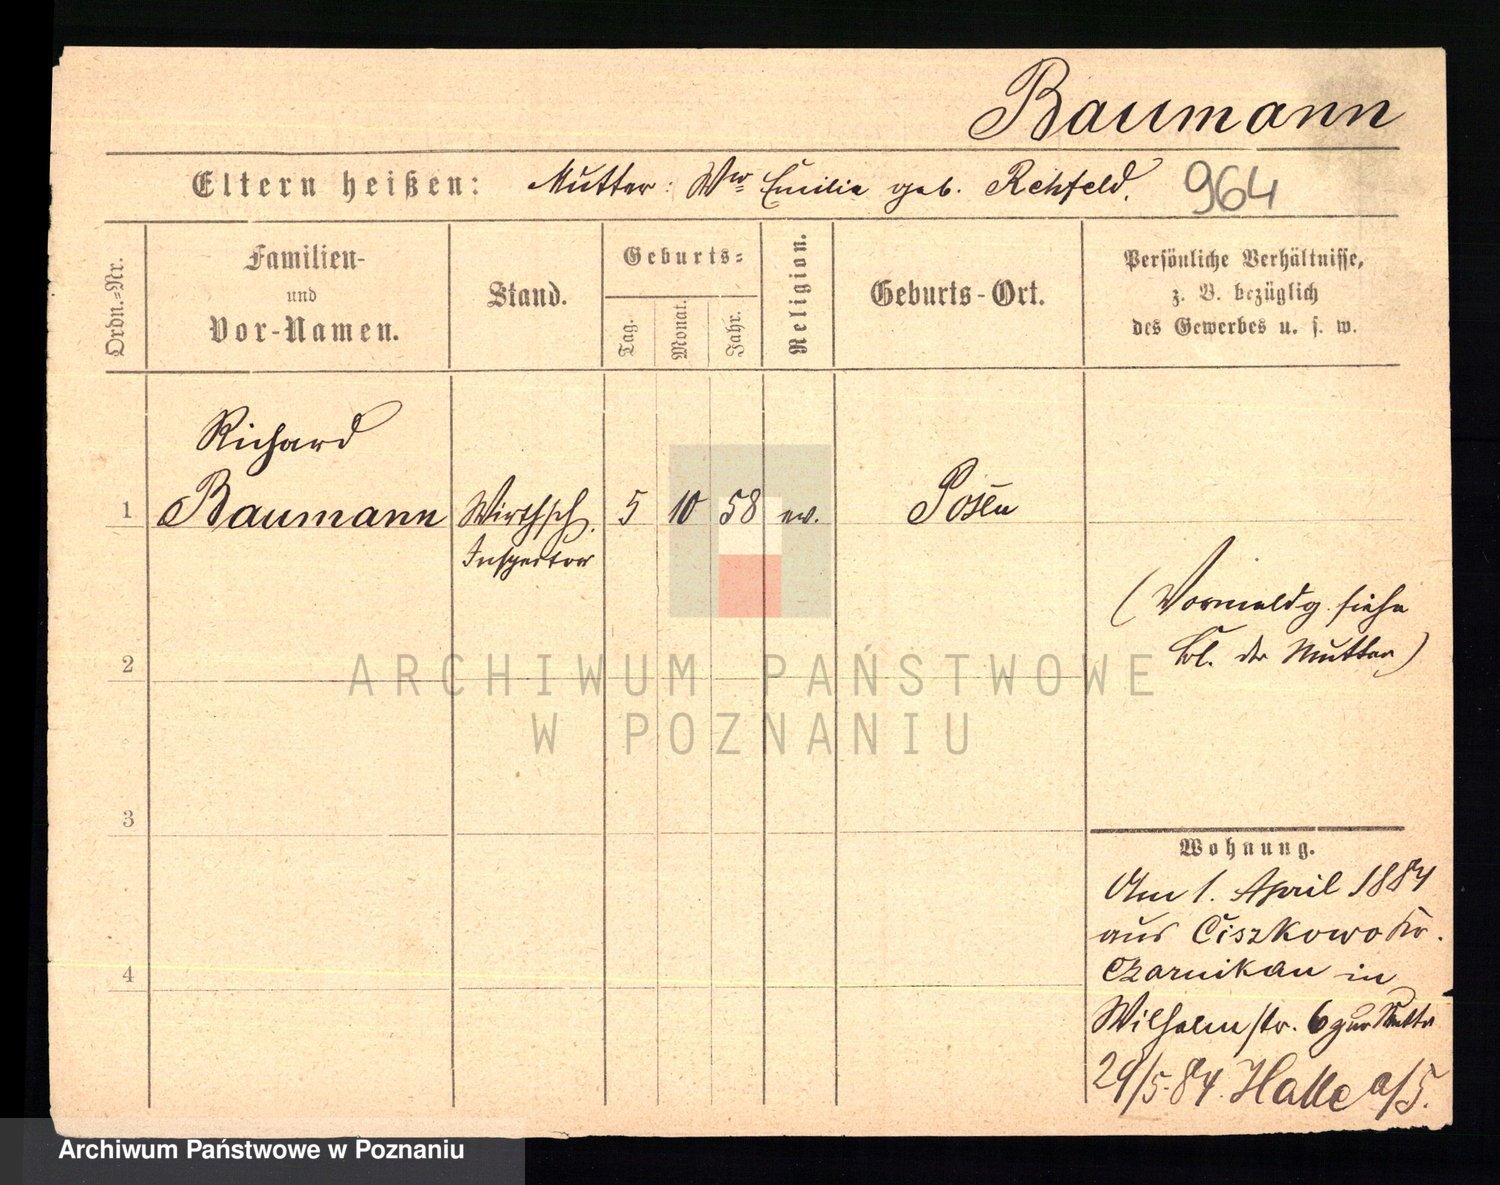 Baumann
Eltern heißen: Mutter: Wwe Emilie geb. Rehfeld. 964
Ordn.=Nr.
Familien-
und
Vor-Namen.
Stand.
Geburts=
Tag.
Monat.
Jahr.
Religion.
Geburts-Ort.
Persönliche Verhältnisse,
z. B. bezüglich
des Gewerbes u. s. w.
Richard
1 Baumann Wirthsch. 5 10 58 ev. Posen
Inspektor
(Vormeldg. siehe
Bl. der Mutter)
2
ARCHIWUM PAŃSTWOWE
W POZNANIU
3
Wohnung.
Am 1. April 1884
aus Ciszkowo Kr.
4 Czarnikau in
Wilhelmstr. 6 zur Mutter
29/5.84. Halle a/S.
Archiwum Państwowe w Poznaniu